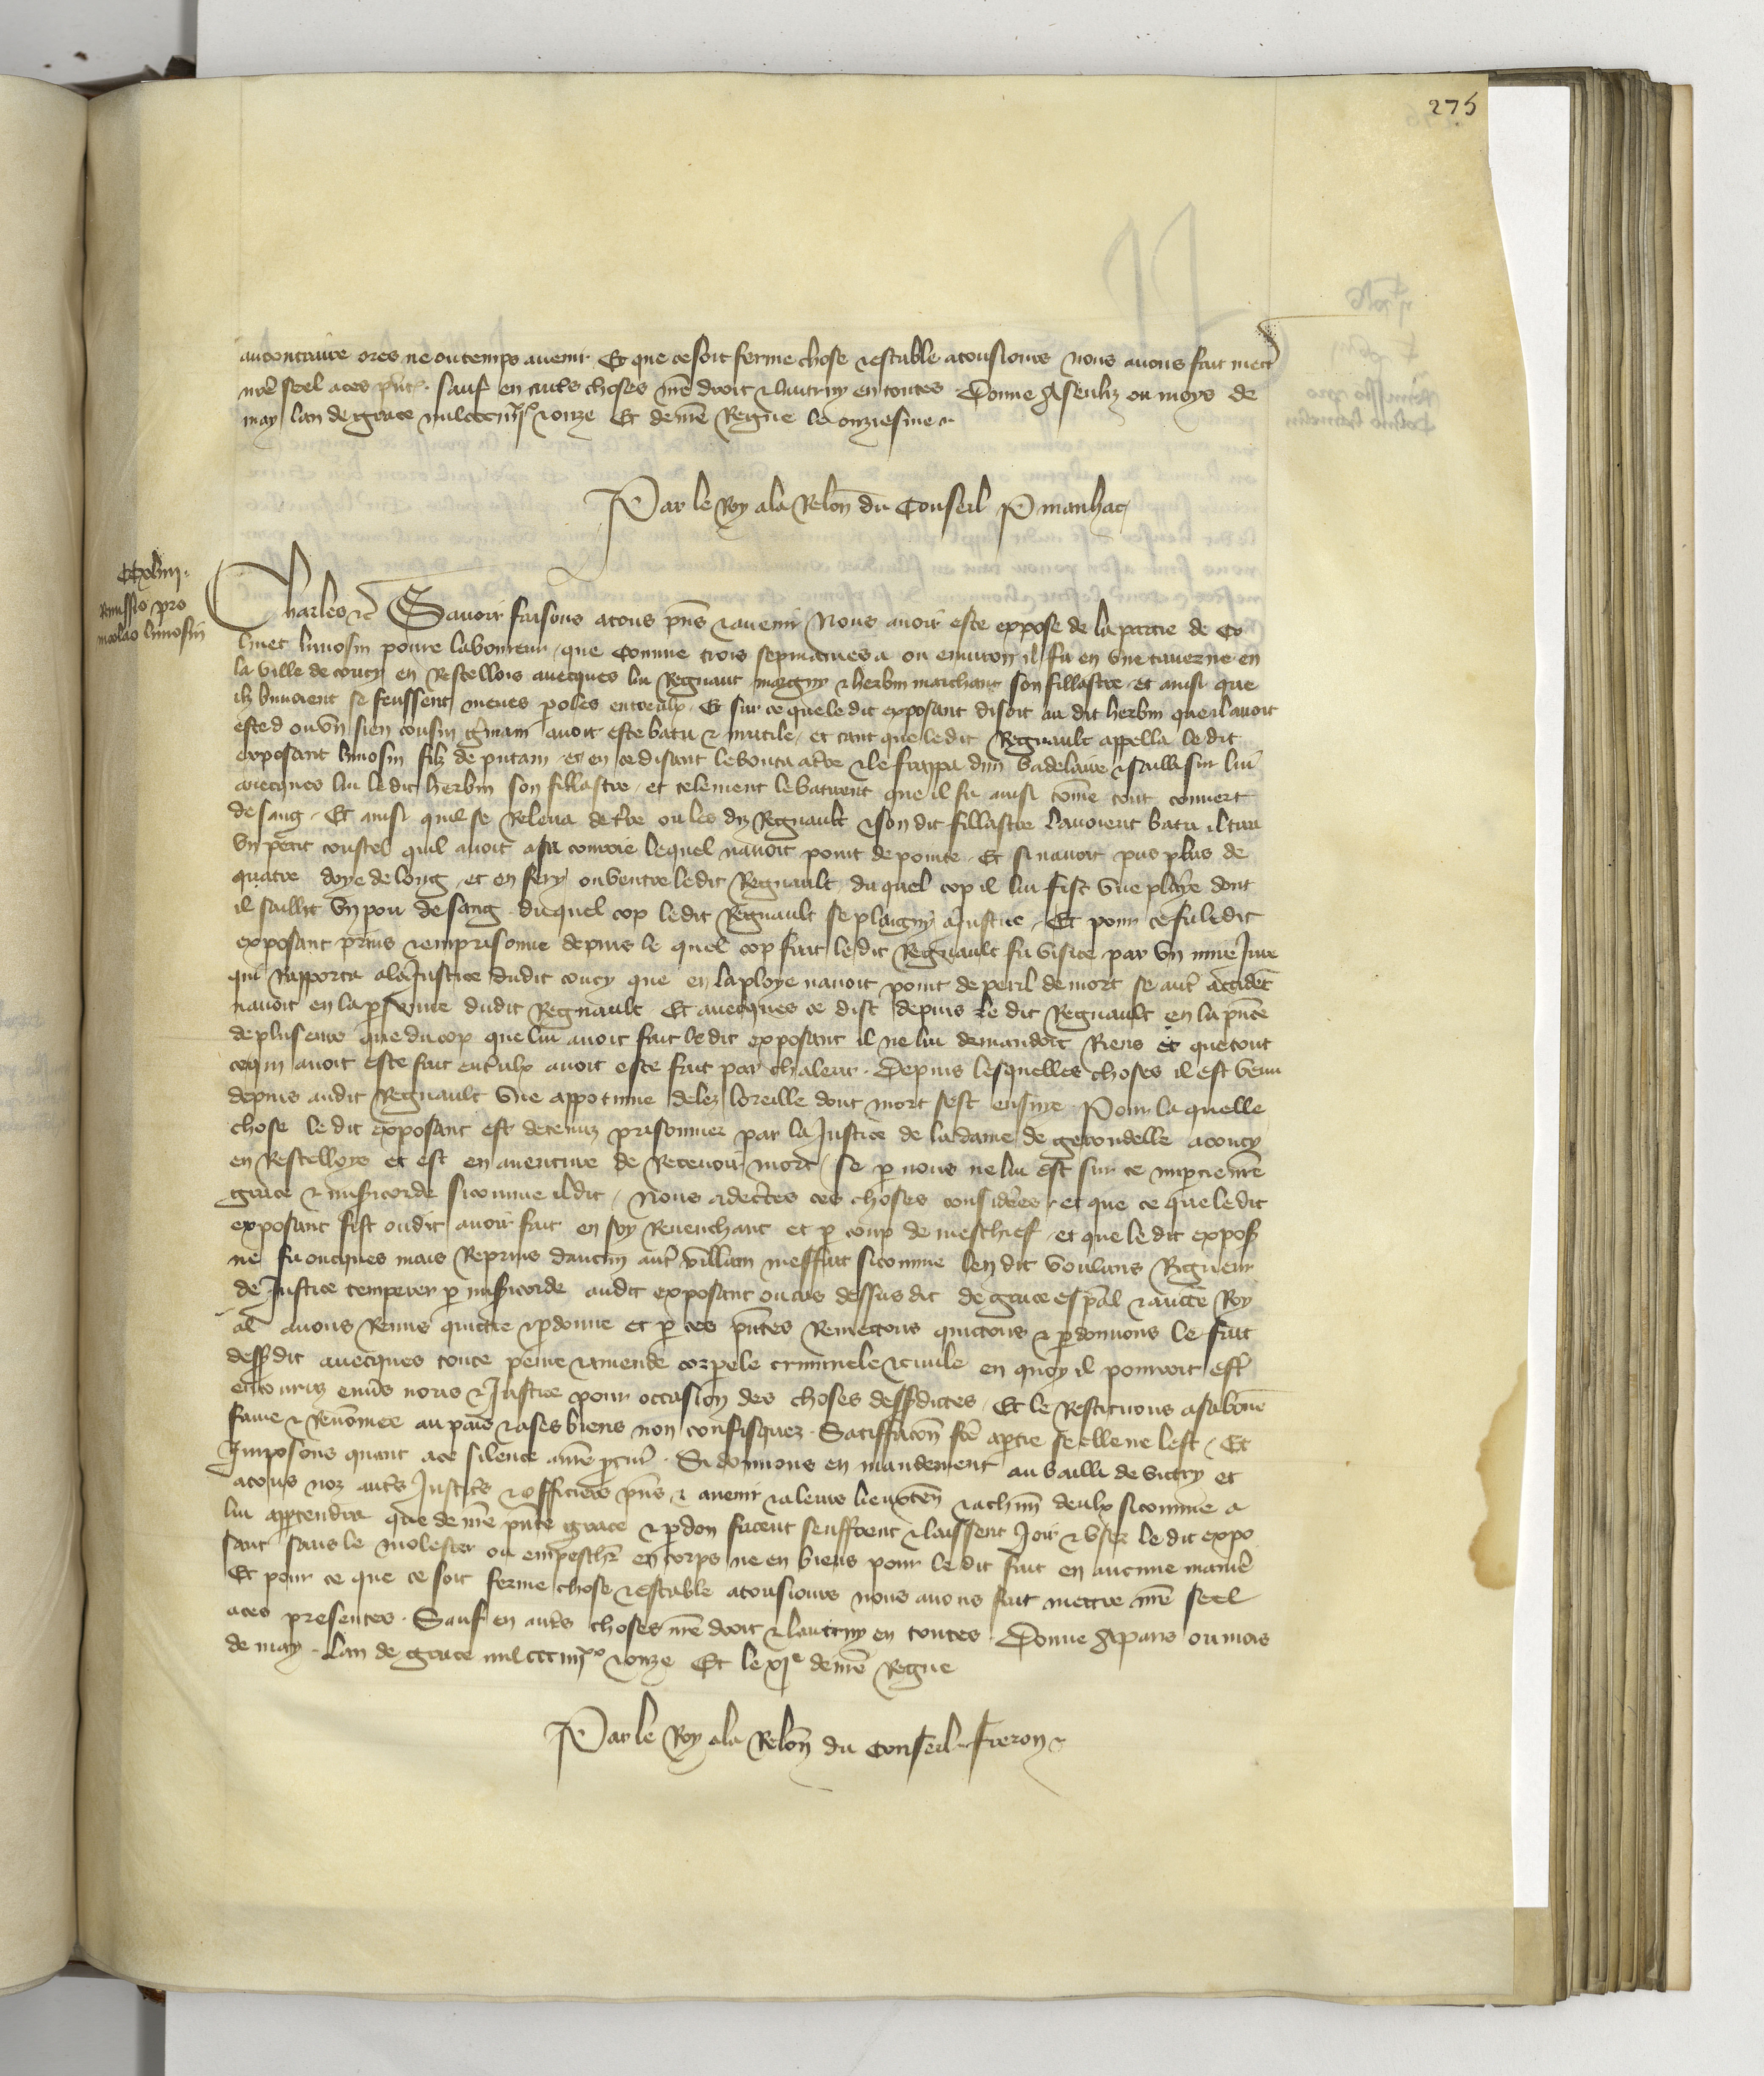 275
au contraire ores ne ou temps avenir Et que ce soit ferme chose et estable a tousiours nous avons fait mettr
nre seel a ces pntes. sauf en autres choses nre droit et lautruy en toutes Donne A senliz ou moys de
may lan de grace mil ccc iiiixx et onze Et de nre Regne le onziesme
Par le Roy a la Relon du Conseil P manhac
CCxlvii.
Remissio pro
nicolao limosin
Charles etc Savoir faisons a tous pns et avenir Nous avoir este expose de la partie de Co
linet limosin povre laboureur, que comme trois sepmaines a ou environ il fu en une taverne en
la ville de coucy en Restellois avecques lui Regnaut margny et herbin marchant son fillastre et ainsi que
ilz buvoient se feussent meues poles entreulx Et sur ce que le dit exposant disoit au dit herbin que il avoit
este d ou un sien cousin gmain avoit este batu et mutile, et tant que le dit Regnault appella le dit
exposant limosin filz de putain et en ce disant le bouta a tre et le frappa dun badelaire et sailli sur lui
avecques lui le dit herbin son fillastre, et telement le batirent que il fu ainsi come tout couvert
de sang. Et ainsi quil se Releva de tre ou les diz Regnault et son dit fillastre lavoient batu il tira
un petit coustel quil avoit a sa couroie lequel navoit point de pointe. Et si navoit pas plus de
quatre doye de long, et en fery ou ventre le dit Regnault du quel cop il lui fist une playe dont
il sailli un pou de sang. du quel cop le dit Regnault se plaigny a Justice, Et pour ce fu le dit
exposant prins et emprisonne depuis le quel cop fait le dit Regnault fu visite par un mire Jure
qui Rapporta a la Justice dudit coucy que en la playe navoit point de peril de mort se autr accidet
navoit en la personne dudit Regnault Et avecques ce dist depuis le dit Regnault en la pnce
de plusieurs que du cop que lui avoit fait le dit exposant il ne lui demandoit Riens et que tout
ce qui avoit este fait entreulx avoit este fait par chaleur. Depuis lesquelles choses il est venu
depuis audit Regnault une appostume delez loreille dont mort sest ensivye. Pour la quelle
chose le dit exposant est detenuz prisonnier par la Justice de la dame de gerondelle a coucy
en Restelloys et est en aventure de Recevoir mort, se p nous ne lui est sur ce imptie nre
grace et misicorde si comme il dit, Nous adectes ces choses consideres et que ce que le dit
exposant fist ou dit avoir fait en soy Revenchant et p coup de meschief et que le dit expos
ne fu oncques mais Reprins daucun autr villain meffait si comme len dit voulans Rigueur
de Justice temperer p misicorde audit exposant ou cas dessus dit de grace espal et aucte Roy
al avons Remis quicte et pdonne et p ces pntes Remettons quictons et pdonnons le fait
dessdit avecques toute peine et amende corpele criminele et civile en quoy il pourroit estr
encouruz envs nous et Justice pour occasion des choses dessdictes, Et le Restituons a sa bone
fame et Renomee au pais et a ses biens non confisquez. Satisfacon fce a ptie se elle ne lest, Et
Imposons quant a ce silence a nre pcur. Si donnons en mandement au bailli de victry et
a tous noz autrs Justicrs et officiers pns et avenir et a leurs lieuxten et a chun deulx si comme a
lui appartendra que de nre pnte grace et pdon facent seuffrent et laissent Joir et user le dit expo
sant sans le molester ou empeschr en corps ne en biens pour le dit fait en aucune manie
Et pour ce que ce soit ferme chose et estable a tousiours nous avons fait mettre nre seel
a ces presentes. Sauf en autrs choses nre droit et lautruy en toutes. Donne A paris ou mois
de may. Lan de grace mil ccc iiiixx et onze Et le xje de nre Regne
Par le Roy a la Relon du Conseil. Freron